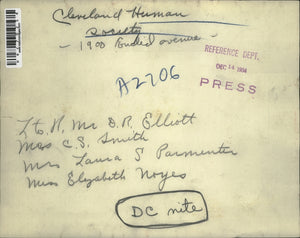 Cleveland Human
Society
- 1900 Euclid avenue -
REFERENCE DEPT.
DEC 14 1934
PRESS
A2706
Lto R, Mr D.R. Elliott
Mrs C.S. Smith
Mrs Laura S Parmenter
Miss Elizabeth Noyes
DC nite